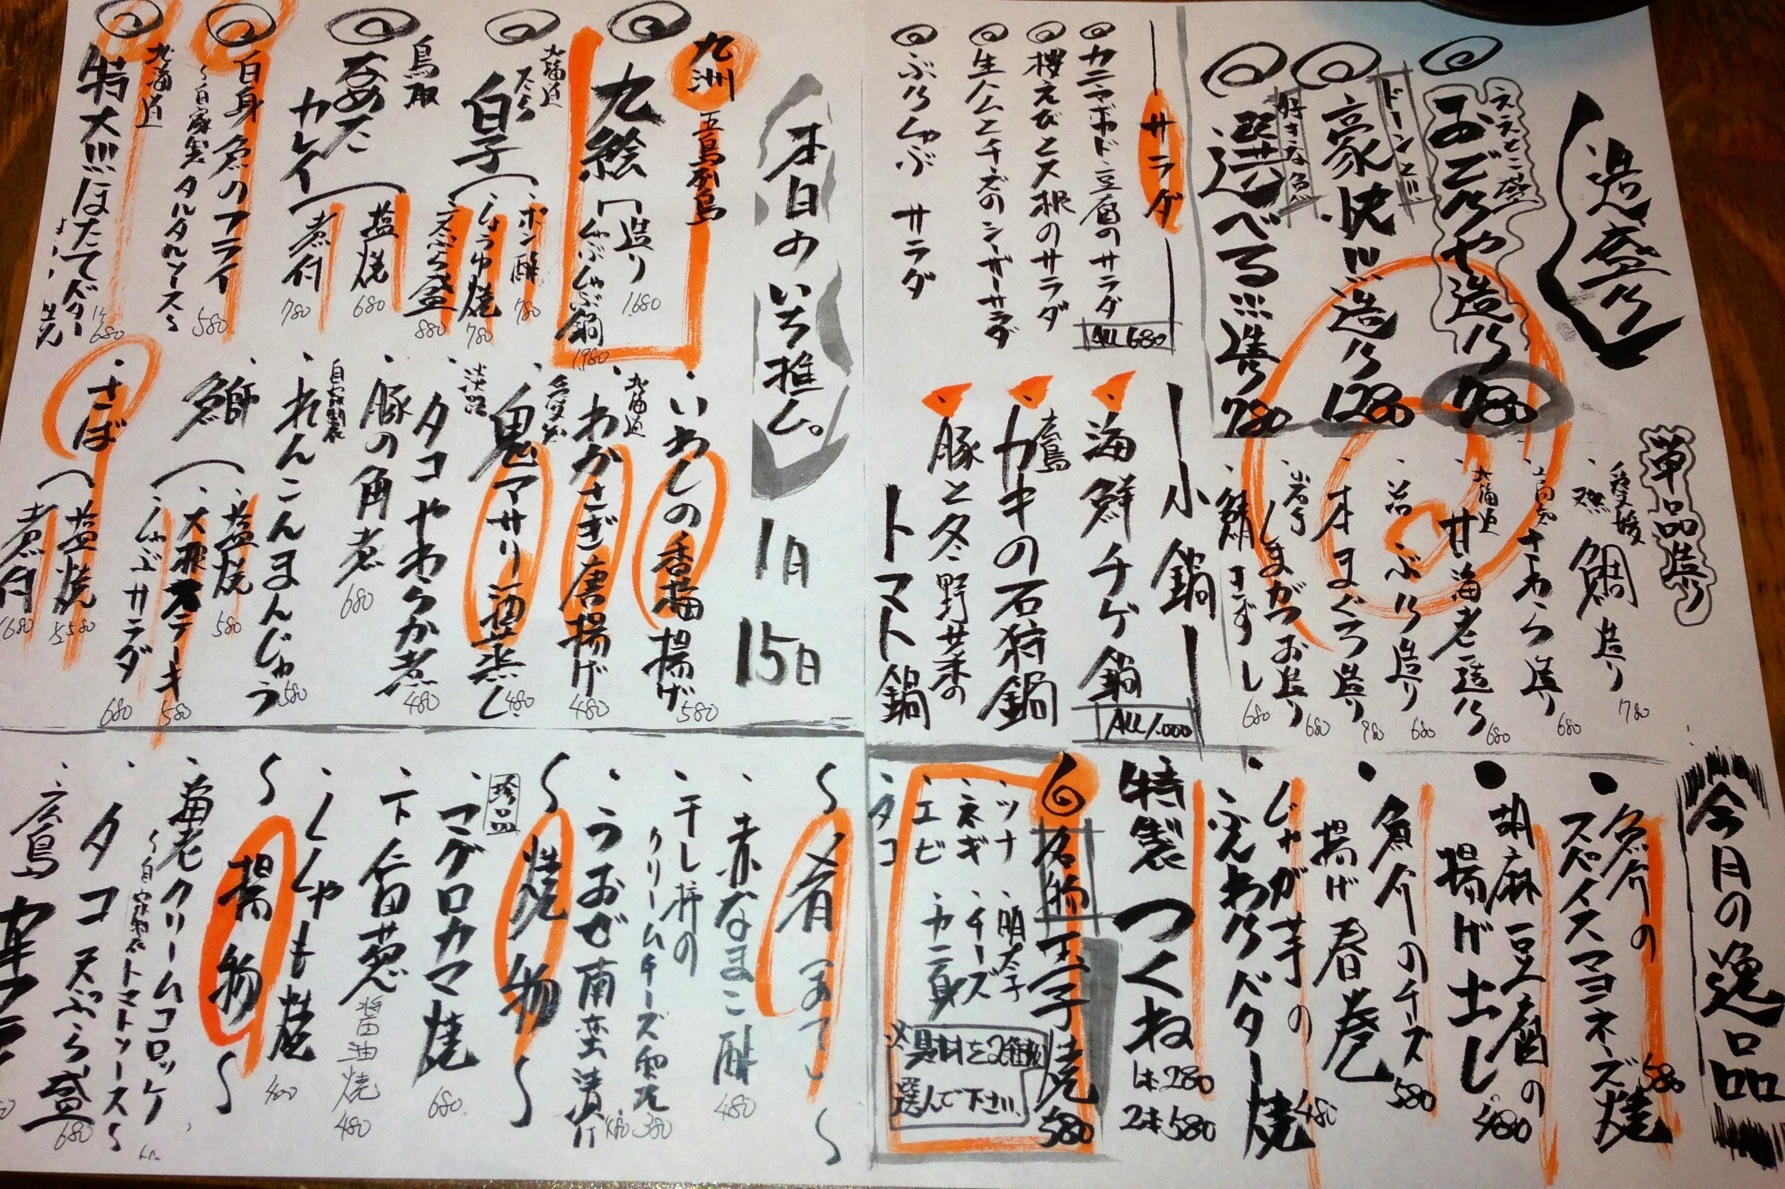 造盛り
ええとこ盛
おごりや造り 780
ドーンと!!
豪快!!!造り 1280
好きな魚
選べる!!!造り 780
単品造り
愛媛
鯛造り 780
さわら造り 680
北海道
甘海老造り 680
ぶり造り 680
本まぐろ造り 780
しまがつお造り 680
鯖きずし 680
サラダ
カニマヨネーズ豆腐のサラダ
桜えびと大根のサラダ
生ハムとチーズのシーザーサラダ
ぶりしゃぶサラダ
ALL 680
小鍋
海鮮チゲ鍋
広島
カキの石狩鍋
豚と冬野菜の
トマト鍋
ALL 1.000
本日のいち推し。
1月
15日
九洲
五島列島
九絵
造り 1.680
しゃぶしゃぶ鍋 1980
北海道
白子
ポン酢 780
しょうゆ焼 780
天ぷら盛 880
鳥取
なめた
カレイ
塩焼 680
煮付 780
白身魚のフライ
〜自家製タルタルソース〜
580
北海道
特大!!!ほたてバター
680
いわしの香梅揚げ 580
北海道
わかさぎ唐揚げ 480
鬼アサリ酒蒸し 480
淡路
タコやわらか煮 480
豚の角煮 680
自家製
れんこんまんじゅう 580
鰤
塩焼 580
大根ステーキ 580
しゃぶサラダ 680
さば
塩焼 580
煮付 680
今月の逸品
魚介の
スパイスマヨネーズ焼 580
胡麻豆腐の
揚げ出し 480
魚介のチーズ
揚げ春巻 580
じゃが芋の
ふんわりバター焼 480
特製つくね
1本280
2本580
名物玉子焼 580
ツナ
ネギ
エビ
タコ
明太子
チーズ
カニ身
※具材を2種類
選んで下さい
〜肴(あて)〜
赤なまこ酢 480
干し柿の
クリームチーズ和え 380
うおぜ南蛮漬け 480
〜焼物〜
珍品
マグロカマ焼 680
下仁田葱醤油焼 480
ししゃも焼 400
〜揚物〜
海老クリームコロッケ
〜自家製トマトソース〜
タコ天ぷら盛 680
広島